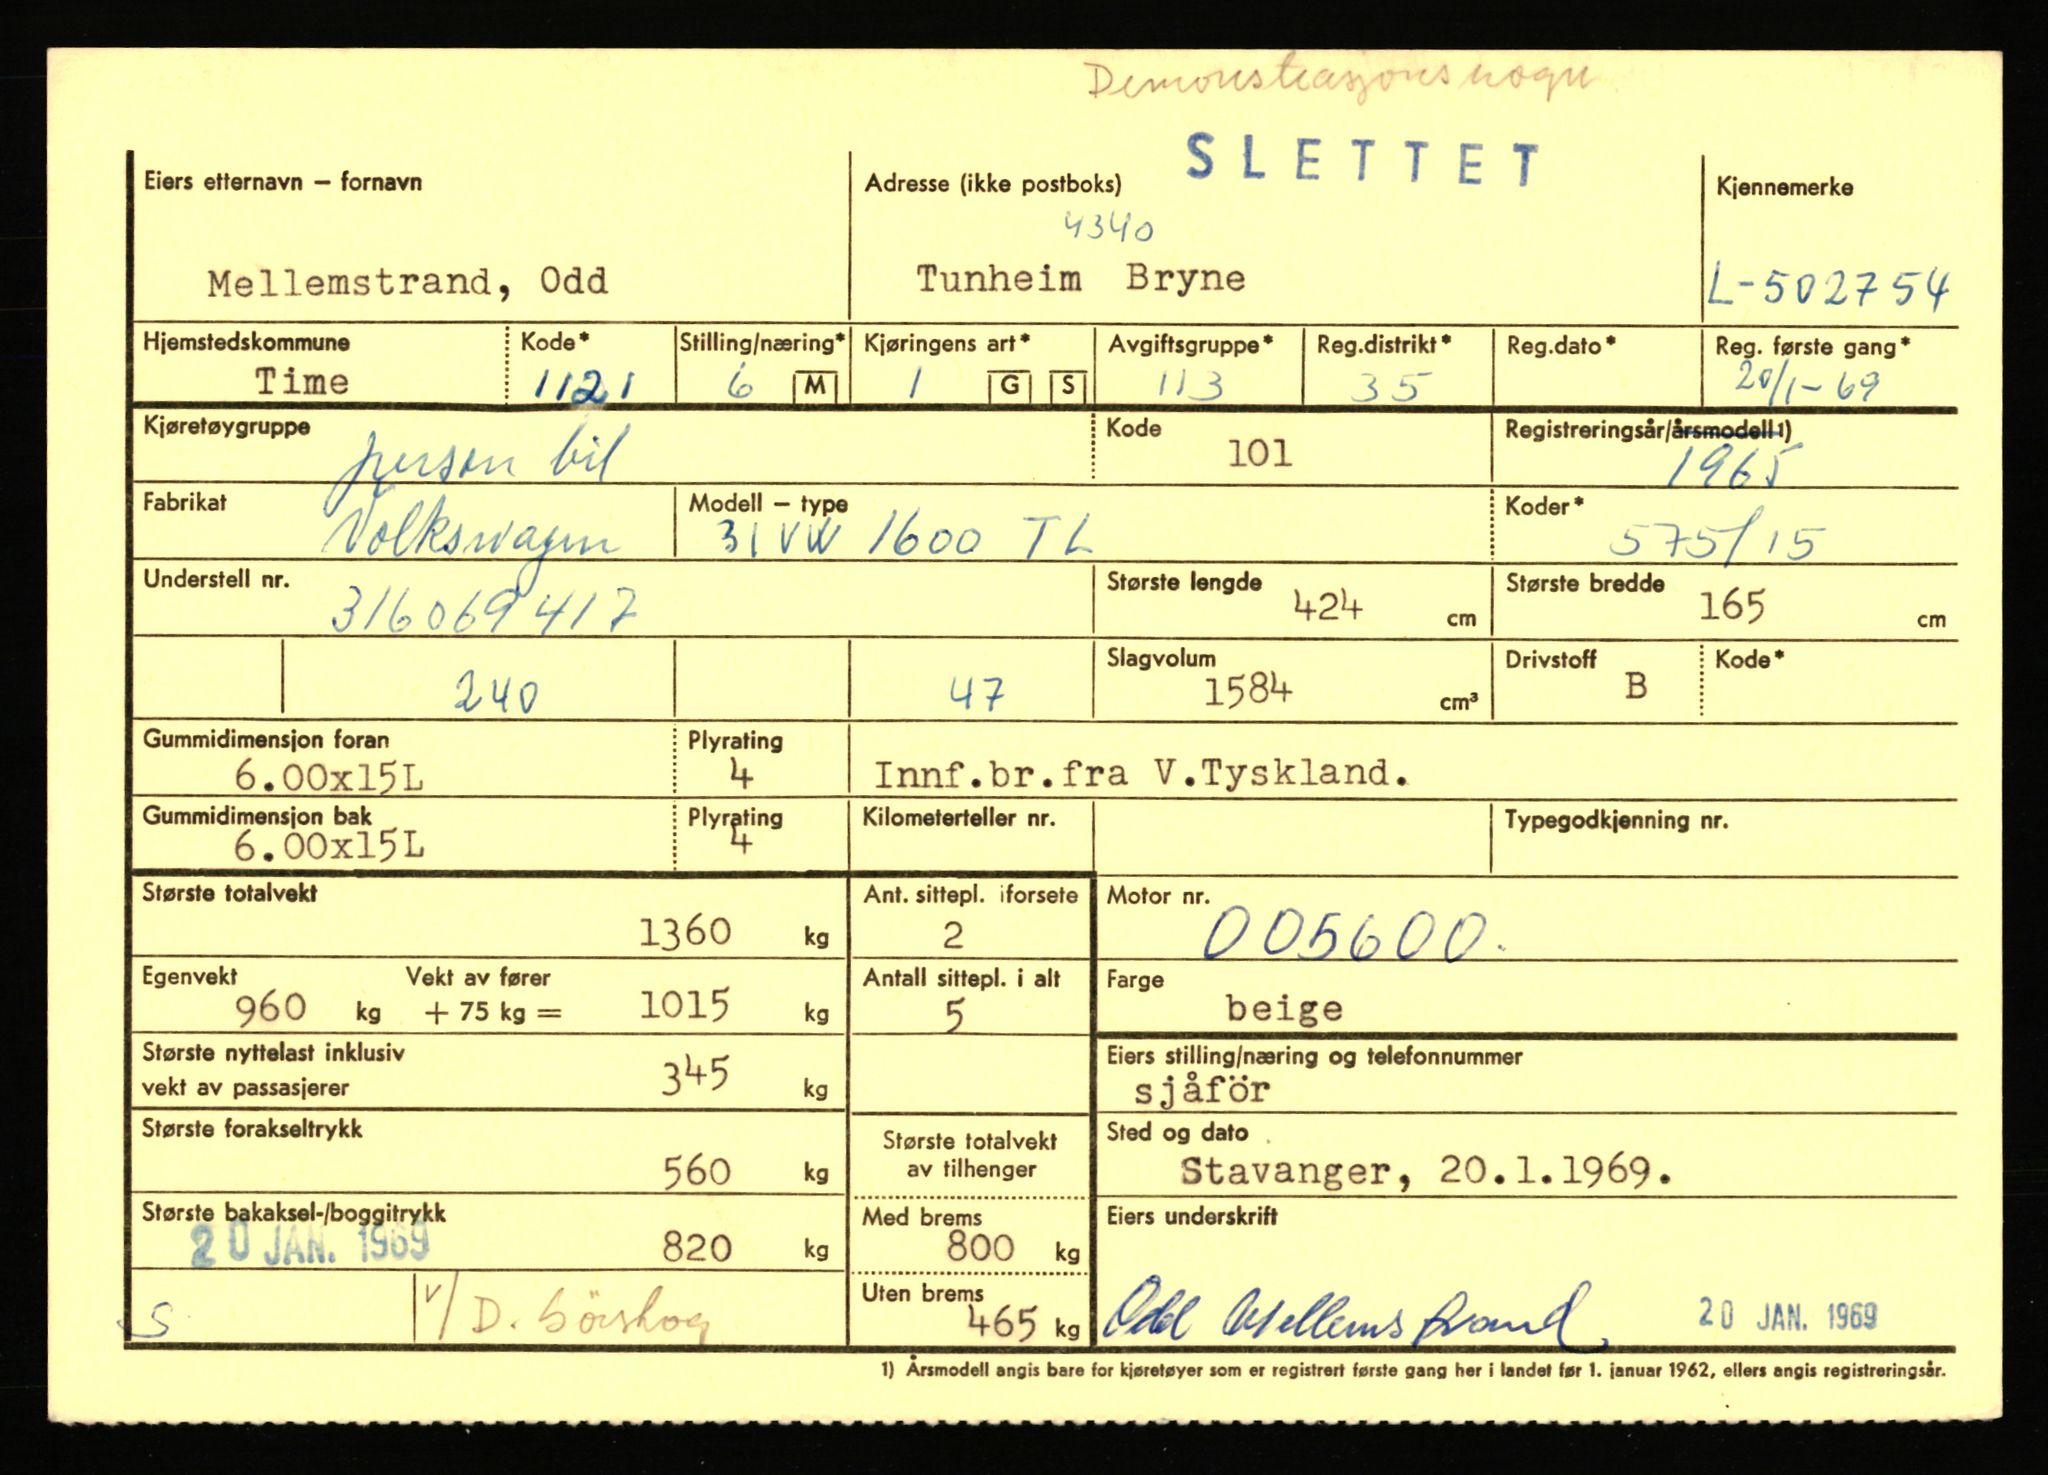 Demonstrasjonsvogn
SLETTET
Eiers etternavn – fornavn
Adresse (ikke postboks)
Kjennemerke
4340
Mellemstrand, Odd
Tunheim Bryne
L-502754
Hjemstedskommune
Kode*
Stilling/næring*
Kjøringens art*
Avgiftsgruppe*
Reg.distrikt*
Reg.dato*
Reg. første gang*
Time
1121
6 M
1 G S
113
35
20/1-69
Kjøretøygruppe
Kode
Registreringsår/årsmodell 1)
person bil
101
1965
Fabrikat
Modell – type
Koder*
Volkswagen
31 VW 1600 TL
575/15
Understell nr.
Største lengde
Største bredde
316069417
424 cm
165 cm
Slagvolum
Drivstoff
Kode*
240
47
1584 cm³
B
Gummidimensjon foran
Plyrating
6.00x15L
4
Innf.br.fra V.Tyskland.
Gummidimensjon bak
Plyrating
Kilometerteller nr.
Typegodkjenning nr.
6.00x15L
4
Største totalvekt
Ant. sittepl. iforsete
Motor nr.
1360 kg
2
005600.
Egenvekt
Vekt av fører
Antall sittepl. i alt
Farge
960 kg + 75 kg = 1015 kg
5
beige
Største nyttelast inklusiv
vekt av passasjerer
345 kg
Eiers stilling/næring og telefonnummer
sjåför
Største forakseltrykk
560 kg
Største totalvekt
av tilhenger
Sted og dato
Stavanger, 20.1.1969.
Største bakaksel-/boggitrykk
20 JAN. 1969
820 kg
Med brems
800 kg
Eiers underskrift
S
v/ D.
Uten brems
465 kg
Odd Mellemstrand
20 JAN. 1969
1) Årsmodell angis bare for kjøretøyer som er registrert første gang her i landet før 1. januar 1962, ellers angis registreringsår.